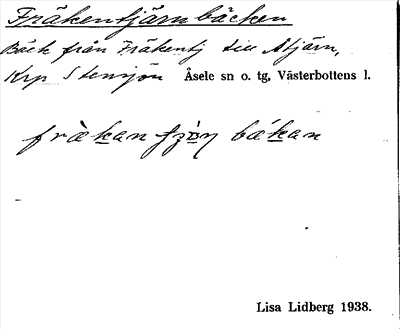 Fräkentjärnbäcken
Bäck från Fräkentj till Åtjärn,
Krp Stensjön Åsele sn o. tg, Västerbottens l.
bákan
Lisa Lidberg 1938.